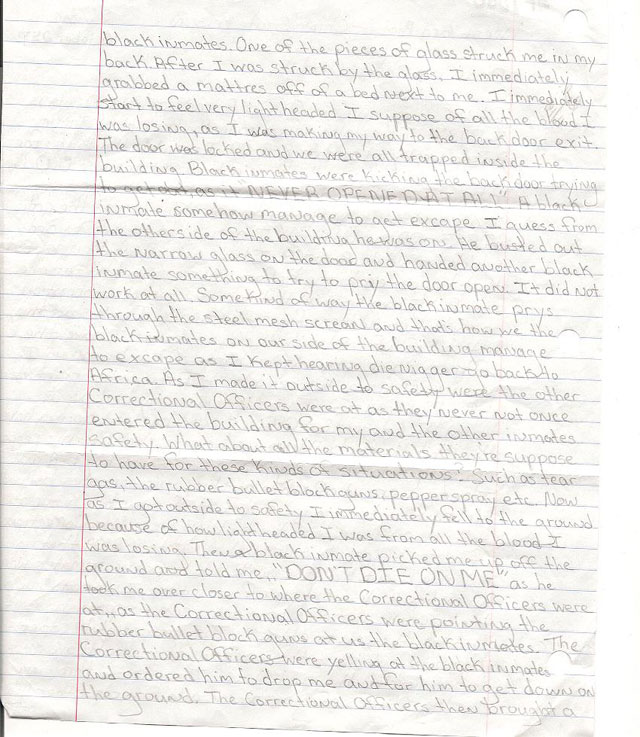 black inmates. One of the pieces of glass struck me in my
back. After I was struck by the glass. I immediately
grabbed a mattres off of a bed next to me. I immediately
start to feel very lightheaded I suppose of all the blood I
was losing, as I was making my way to the back door exit.
The door was locked and we were all trapped inside the
building. Black inmates were kicking the back door trying
to get out, as it "NEVER OPENED AT ALL" A black
inmate somehow manage to get excape. I guess from
the otherside of the building he was on. He busted out
the narrow glass on the door and handed another black
inmate something to try to pry the door open. It did not
work at all. Some kind of way the black inmate prys
through the steel mesh screan and that's how we the
black inmates on our side of the building manage
to excape as I kept hearing die nigger go back to
Africa. As I made it outside to safety were the other
Correctional Officers were at as they never not once
entered the building for my and the other inmates
safety. What about all the materials they're suppose
to have for these kinds of situations? Such as tear
gas, the rubber bullet block guns, pepper spray etc. Now
as I got outside to safety I immediately fell to the ground
because of how lightheaded I was from all the blood I
was losing. Then a black inmate picked me up off the
ground and told me.. "DON'T DIE ON ME" as he
took me over closer to where the Correctional Officers were
at,, as the Correctional Officers were pointing the
rubber bullet block guns at us the black inmates. The
Correctional Officers were yelling at the black inmates
and ordered him to drop me and for him to get down on
the ground. The Correctional Officers then brought a